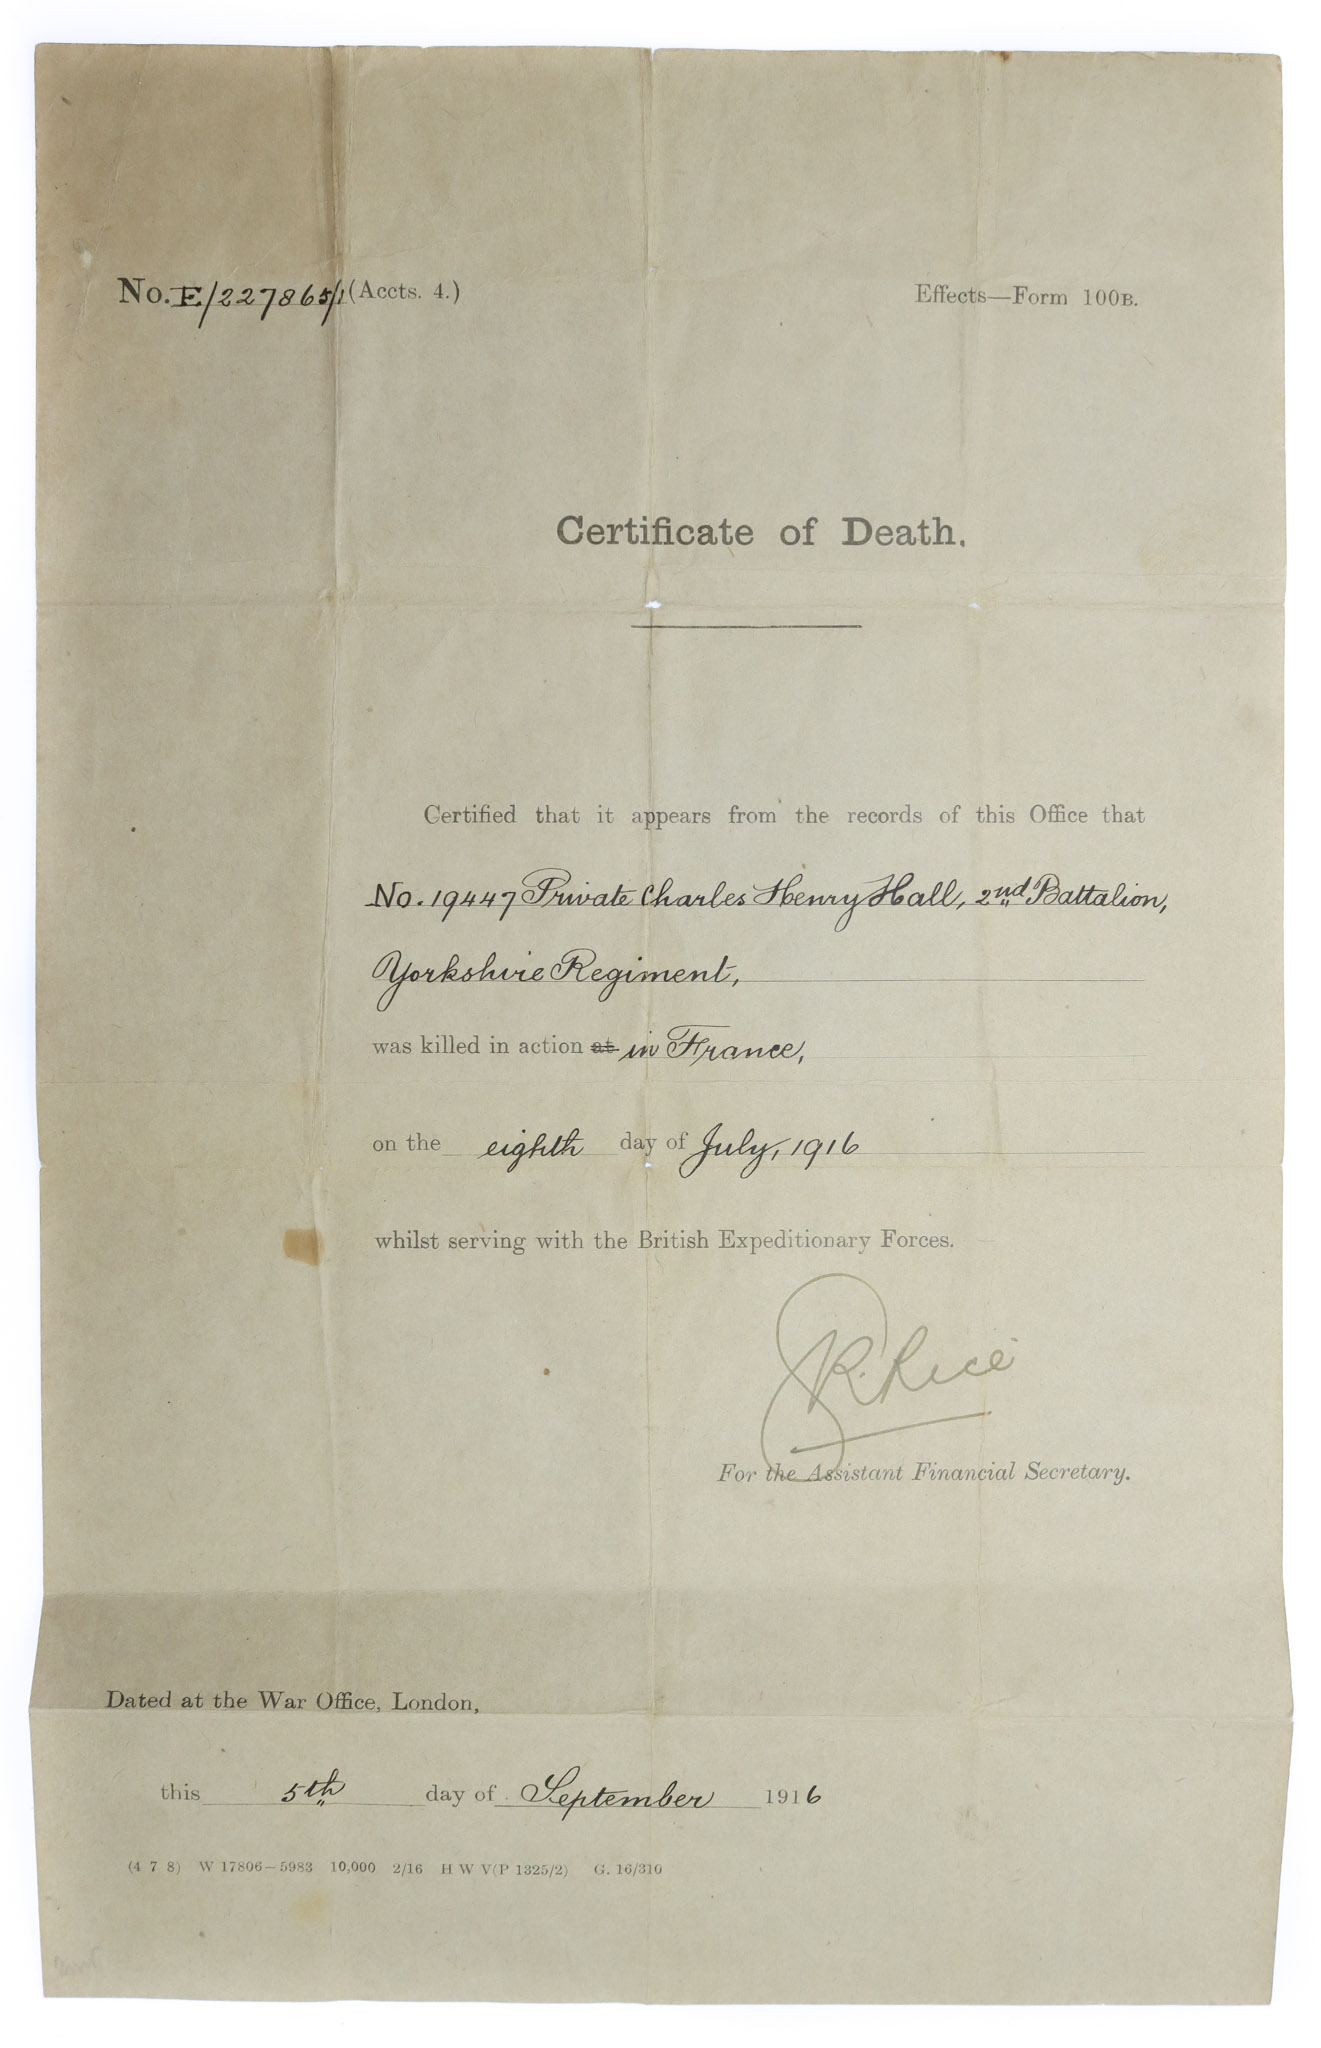 No. E/227865/1 (Accts. 4.)
Effects—Form 100B.
Certificate of Death.
Certified that it appears from the records of this Office that
No. 19447 Private Charles Henry Hall, 2nd Battalion,
Yorkshire Regiment,
was killed in action at in France,
on the eighth day of July, 1916
whilst serving with the British Expeditionary Forces.
R. Rice
For the Assistant Financial Secretary.
Dated at the War Office, London,
this 5th day of September 1916
(4 7 8) W 17806—5983 10,000 2/16 H W V(P 1325/2) G. 16/310